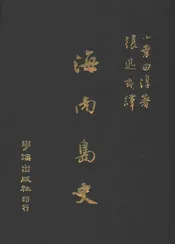 小葉田淳著
張迅齊譯
海南島史
學海出版社印行